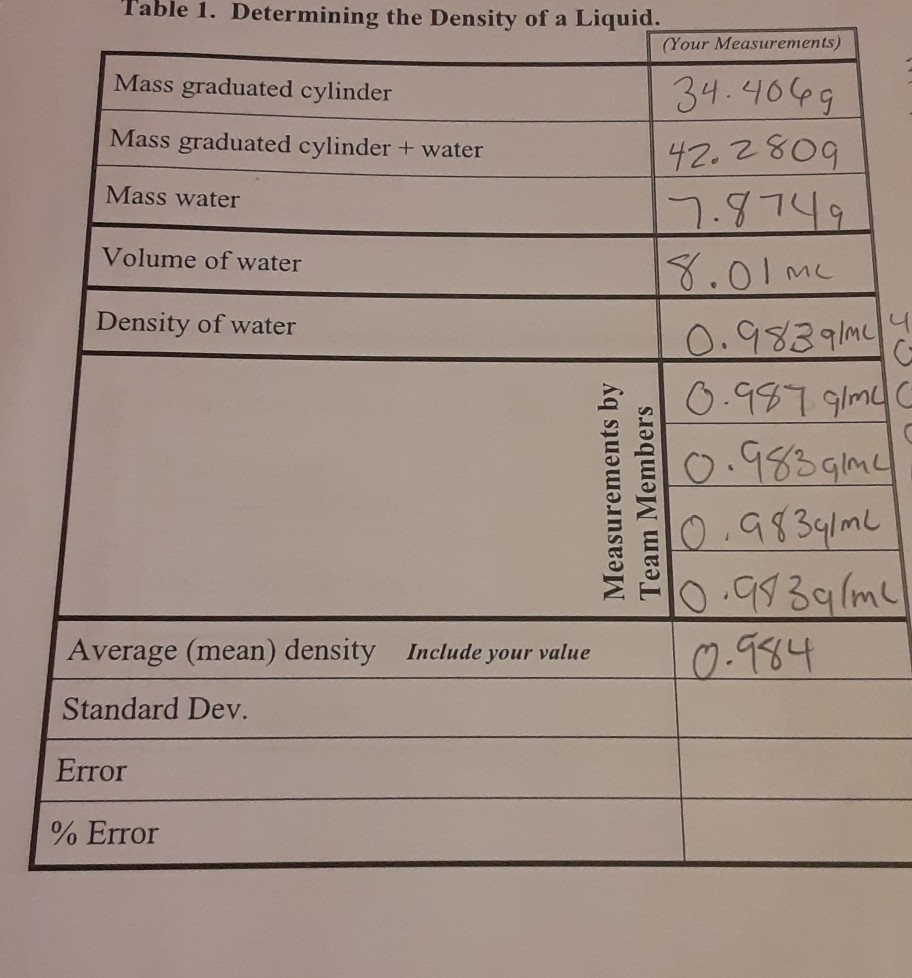 Table 1. Determining the Density of a Liquid.
(Your Measurements)
Mass graduated cylinder 34.406g
Mass graduated cylinder + water 42.280g
Mass water 7.874g
Volume of water 8.01 mL
Density of water 0.983g/mL
Measurements by
Team Members
0.987 g/mL
0.983g/mL
0.983g/mL
0.983g/mL
Average (mean) density Include your value 0.984
Standard Dev.
Error
% Error